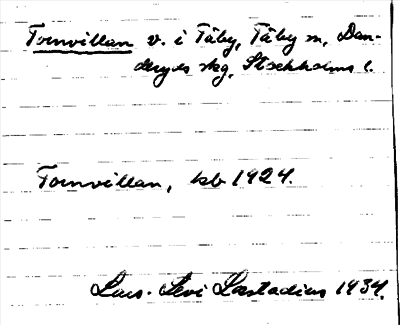 Tornvillan v. i Täby, Täby sn, Dan-
deryds skg, Stockholms l.
Tornvillan, kb 1924.
Lars-Levi Læstadius 1934.